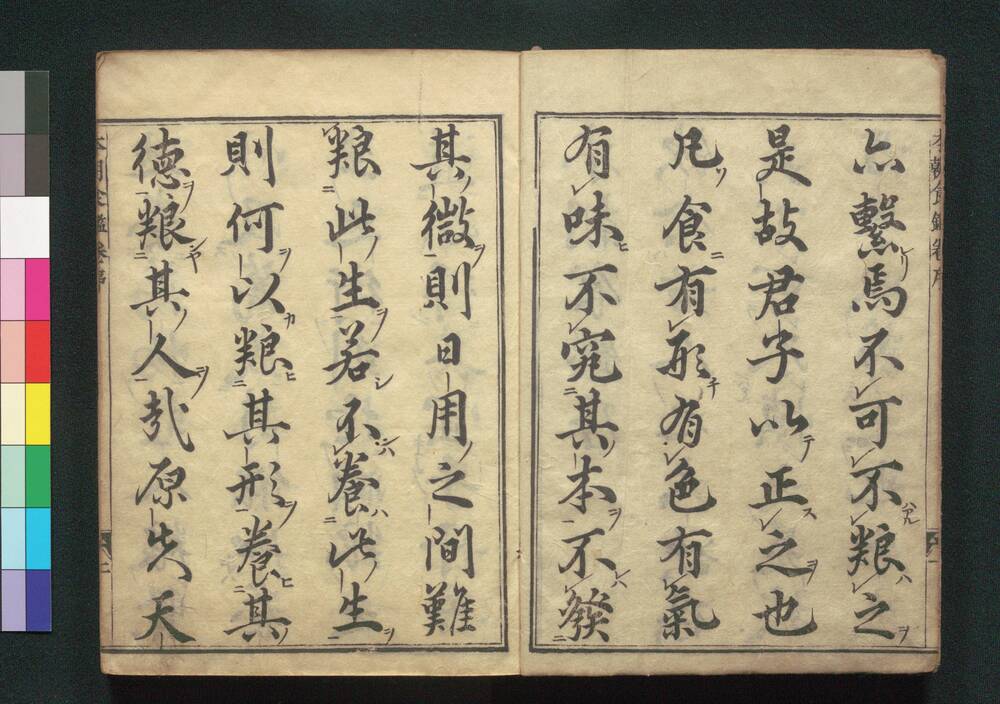 本朝食鑑卷序 一
亦繫焉不可不粮之
是故君子以正之也
凡食有形有色有氣
有味不究其本不發
其微則日用之間難
粮此生若不養此生
則何以粮其形養其
德粮其人哉原夫天
本朝食鑑卷序 二